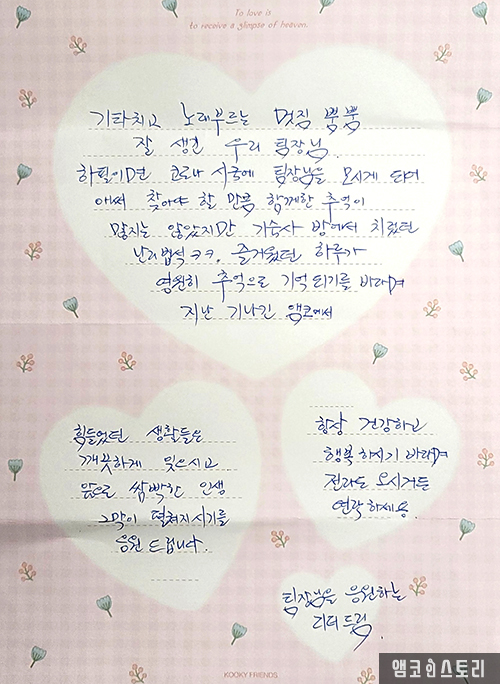 To love is
to receive a glimpse of heaven.
기타치고 노래부르는 멋짐 뿜뿜
잘 생긴 우리 팀장님.
하필이면 코로나 시국에 팀장님을 모시게 되어
애써 찾아야 할 만큼 함께한 추억이
많지는 않았지만 기숙사 방에서 치뤘던
난리법석 ㅋㅋ. 즐거웠던 하루가
영원히 추억으로 기억되기를 바라며
지난 기나긴 앰코에서
힘들었던 생활들은
깨끗하게 잊으시고
앞으로 쌈빡한 인생
2막이 펼쳐지시기를
응원 드립니다.
항상 건강하고
행복하시기 바라며
전라도 오시거든
연락하세용.
팀장님을 응원하는
리더 드림.
KOOKY FRIENDS
앰코인스토리